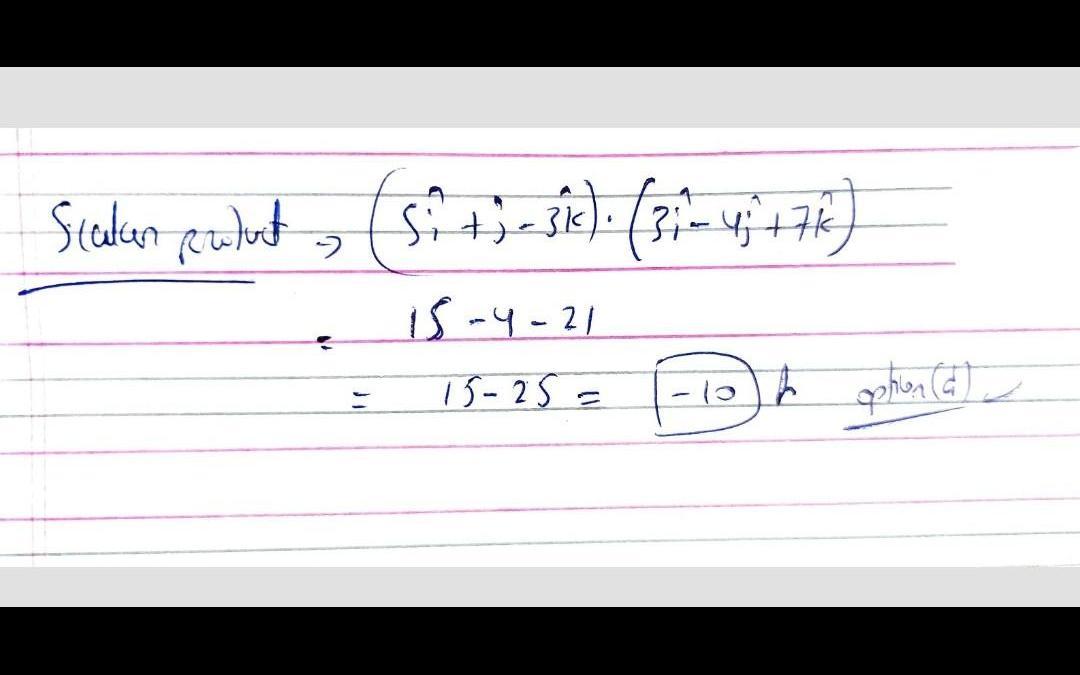 Scalar product → (5î + ĵ - 3k̂) · (3î - 4ĵ + 7k̂)
= 15 - 4 - 21
= 15 - 25 = -10 option (d)